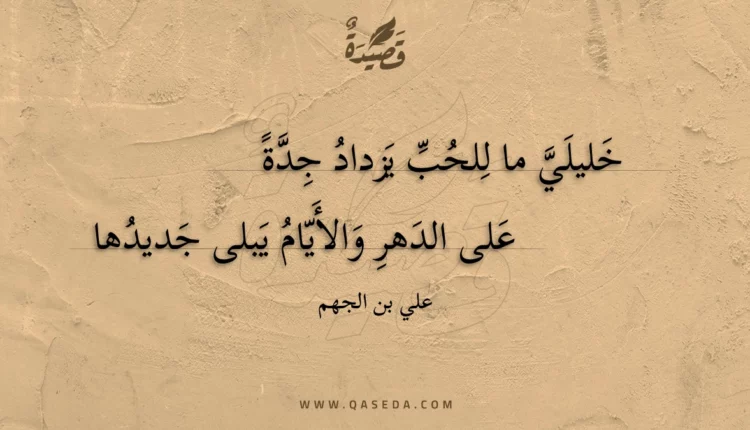 قَصِيْدَةٌ
خَليلَيَّ ما لِلحُبِّ يَزدادُ جِدَّةً
عَلى الدَهرِ وَالأَيّامُ يَبلى جَديدُها
علي بن الجهم
WWW.QASEDA.COM